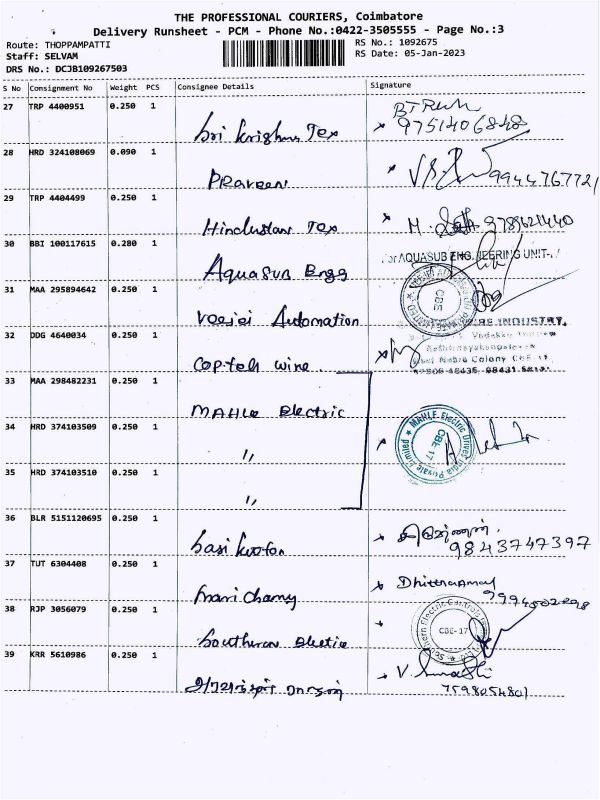 THE PROFESSIONAL COURIERS, Coimbatore
Delivery Runsheet - PCM - Phone No.:0422-3505555 - Page No.:3
Route: THOPPAMPATTI
Staff: SELVAM
DRS No.: DCJB109267503
RS No.: 1092675
RS Date: 05-Jan-2023
S No Consignment No Weight PCS Consignee Details Signature
27 TRP 4400951 0.250 1
Sri Krishna Tex 9751406848
28 HRD 324108069 0.090 1
Praveen 9944767721
29 TRP 4404499 0.250 1
Hindustan Tex M.
30 BBI 100117615 0.280 1
Aquasub Engg
For AQUASUB ENGINEERING UNIT-
31 MAA 295894642 0.250 1
Automation
CBE
32 DDG 4640034 0.250 1
wire
INDUSTRY,
Nehru Colony
33 MAA 298482231 0.250 1
MAHLE Electric
34 HRD 374103509 0.250 1
"
MAHLE Electric Drives India Private Limited
CBE 17
35 HRD 374103510 0.250 1
"
36 BLR 5151120695 0.250 1
9843747397
37 TUT 6304408 0.250 1
38 RJP 3056079 0.250 1
Southern Electric
Southern Electric Controls
CBE-17
39 KRR 5610986 0.250 1
V.
7598054801